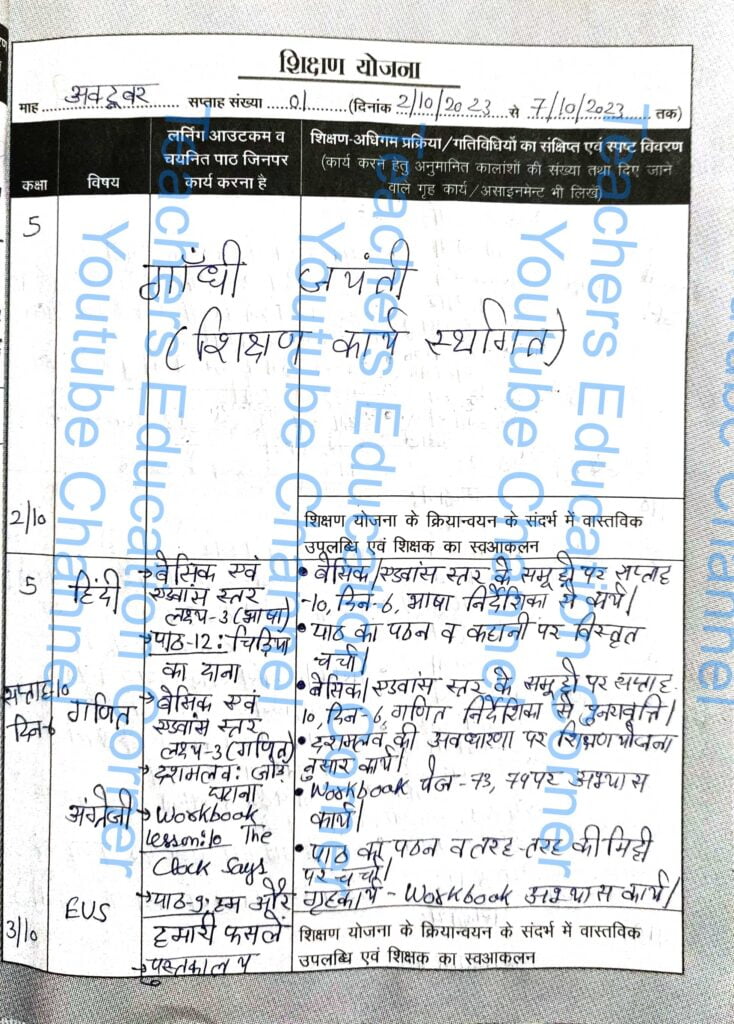 शिक्षण योजना
माह अक्टूबर सप्ताह संख्या 01 (दिनांक 2/10/2023 से 7/10/2023 तक)
कक्षा
विषय
लर्निंग आउटकम व
चयनित पाठ जिनपर
कार्य करना है
शिक्षण-अधिगम प्रक्रिया/गतिविधियों का संक्षिप्त एवं स्पष्ट विवरण
(कार्य करने हेतु अनुमानित कालांशों की संख्या तथा दिए जाने
वाले गृह कार्य/असाइनमेंट भी लिखें)
5
गाँधी जयंती
(शिक्षण कार्य स्थगित)
2/10
शिक्षण योजना के क्रियान्वयन के संदर्भ में वास्तविक
उपलब्धि एवं शिक्षक का स्वआकलन
5
सप्ताह-10
दिन-6
3/10
हिंदी
गणित
अंग्रेजी
EVS
→ बैसिक एवं
एडवांस स्तर
लक्ष्य-3 (भाषा)
→ पाठ-12: चिड़िया
का दाना
→ बैसिक एवं
एडवांस स्तर
लक्ष्य-3 (गणित)
→ दशमलव: जोड़
घटाना
→ Workbook
lesson:10 The
Clock Says
→ पाठ-9: हम और
हमारी फसलें
→ पुस्तकालय
• बैसिक/एडवांस स्तर के समूहों पर सप्ताह
-10, दिन-6, भाषा निर्देशिका से कार्य।
• पाठ का पठन व कहानी पर विस्तृत
चर्चा।
• बैसिक/एडवांस स्तर के समूहों पर सप्ताह-
10, दिन-6, गणित निर्देशिका से पुनरावृत्ति।
• दशमलव की अवधारणा पर शिक्षण योजना
नुसार कार्य।
• Workbook पेज-73, 74 पर अभ्यास
कार्य।
• पाठ का पठन व तरह-तरह की मिट्टी
पर चर्चा।
गृहकार्य - Workbook अभ्यास कार्य।
शिक्षण योजना के क्रियान्वयन के संदर्भ में वास्तविक
उपलब्धि एवं शिक्षक का स्वआकलन
Teachers Education Corner
Youtube Channel
Teachers Education Corner
Youtube Channel
Teachers Education Corner
Youtube Channel